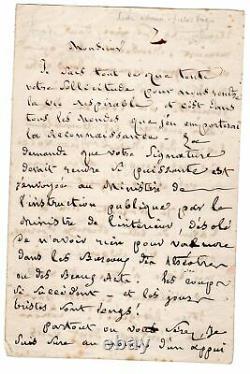 Monsieur
Je sais tout ce que tente
votre sollicitude pour nous rendre
la vie respirable, et c'est dans
tous les mondes que j'en emporterai
la Reconnaissance. La
demande que votre signature
devait rendre si puissante est
renvoyée au Ministre de
l'instruction publique par le
Ministre de l'intérieur, désolé
de n'avoir rien pour
dans les Bureaux des théâtres
ou des Beaux Arts. les
se succèdent - et les jours
tristes sont longs!
partout où vous serez je
suis sûre au moins d'un appui